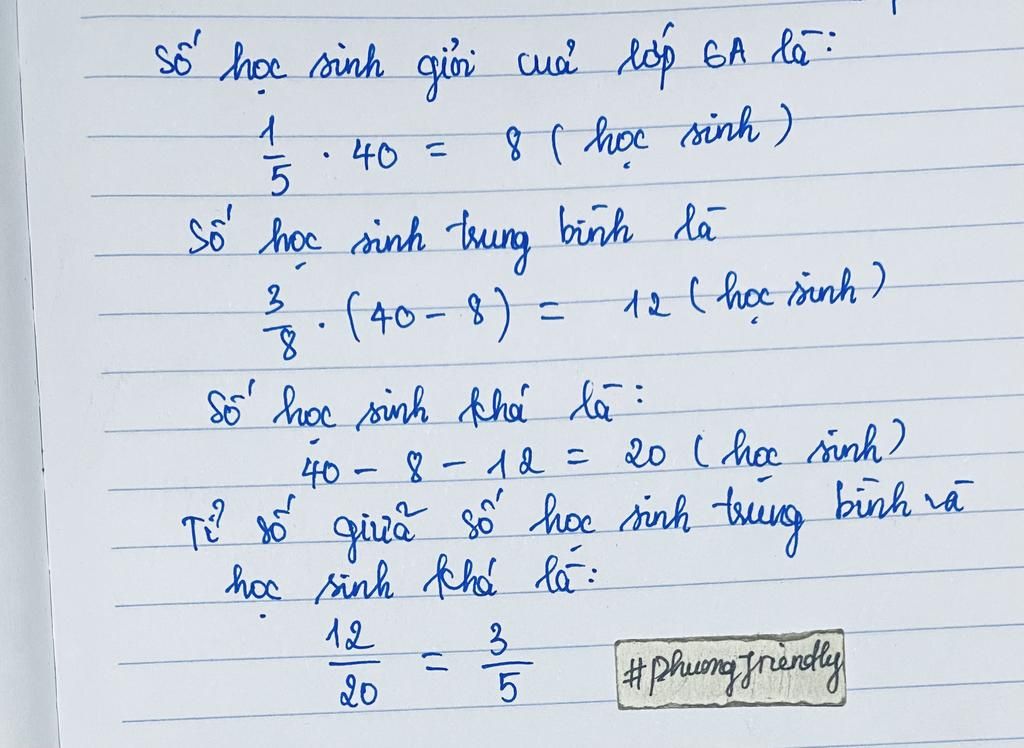 Số học sinh giỏi của lớp 6A là:
1/5 . 40 = 8 (học sinh)
Số học sinh trung bình là
3/8 . (40 - 8) = 12 (học sinh)
Số học sinh khá là:
40 - 8 - 12 = 20 (học sinh)
Tỉ số giữa số học sinh trung bình và
học sinh khá là:
12/20 = 3/5
#phuongfriendly